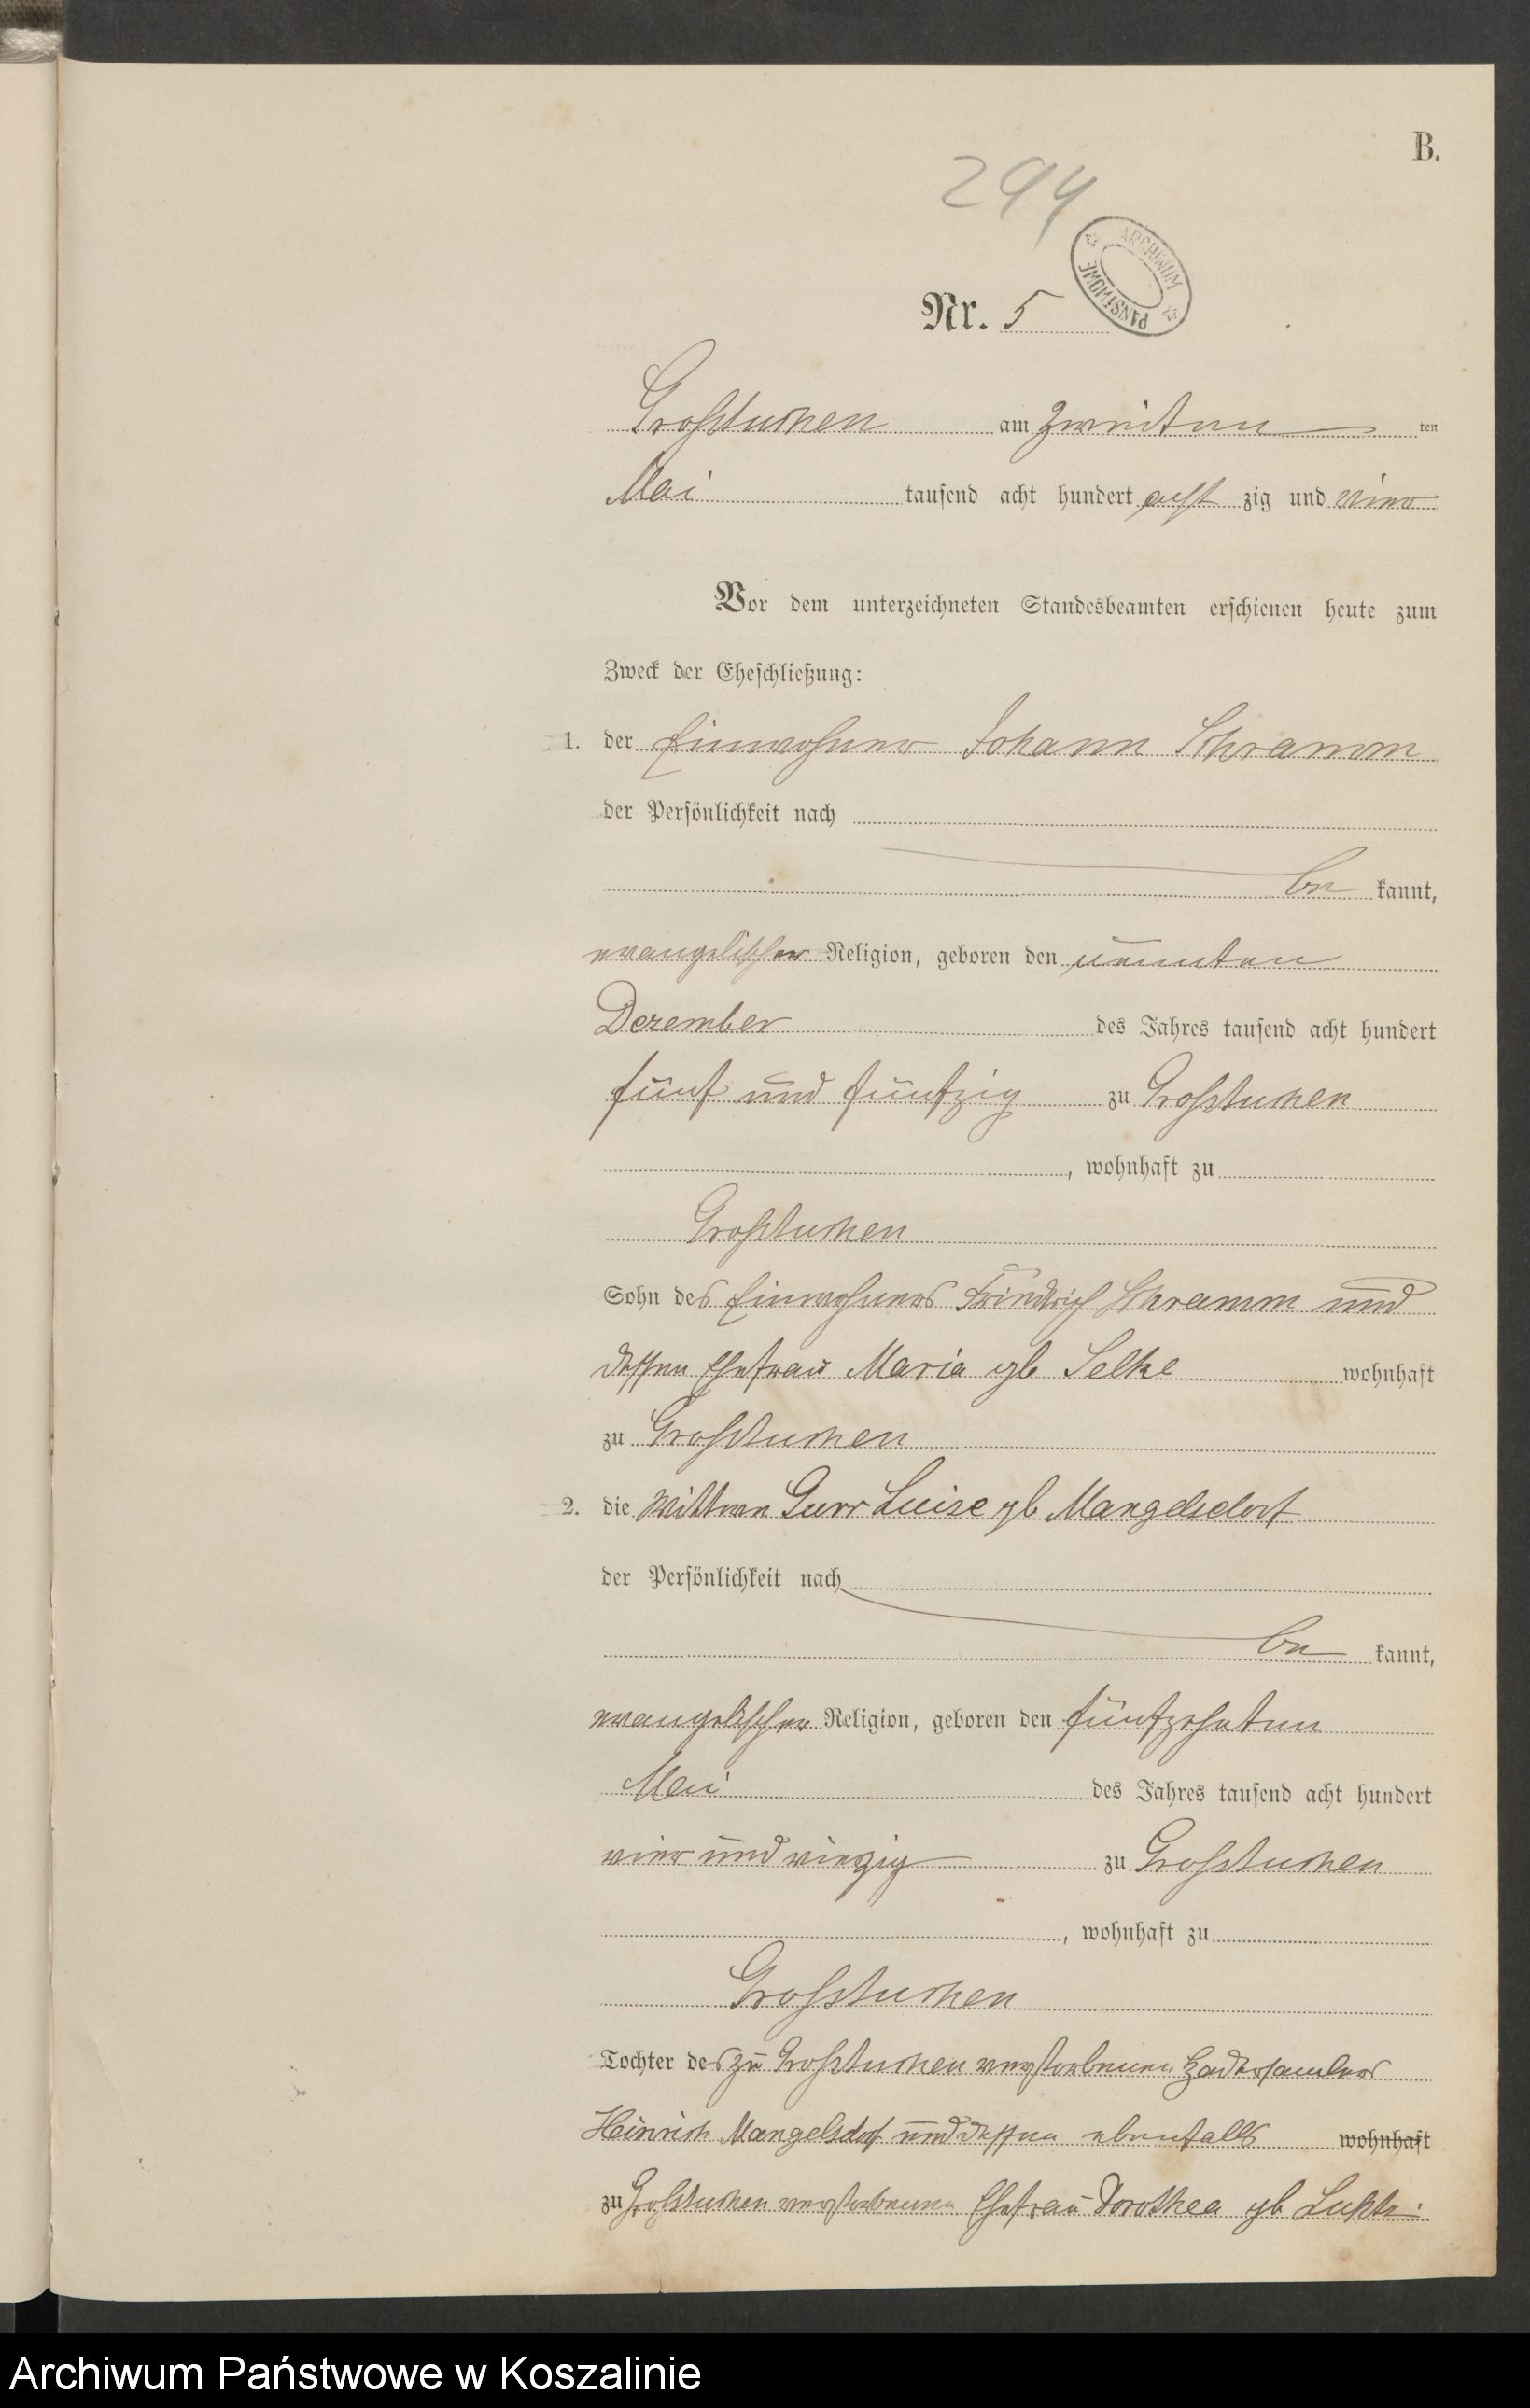 B.
294
ARCHIWUM PAŃSTWOWE
Nr. 5
Großtuchen am zweiten ten
Mai tausend acht hundert acht zig und vier
Vor dem unterzeichneten Standesbeamten erschienen heute zum
Zweck der Eheschließung:
1. der Einwohner Johann Schramm
der Persönlichkeit nach
be kannt,
evangelischer Religion, geboren den neunten
Dezember des Jahres tausend acht hundert
fünf und fünfzig zu Großtuchen
, wohnhaft zu
Großtuchen
Sohn des Einwohners Friedrich Schramm und
dessen Ehefrau Maria gb Selke wohnhaft
zu Großtuchen
2. die Wittwe Gurr Luise gb Mangelsdorf
der Persönlichkeit nach
be kannt,
evangelischer Religion, geboren den fünfzehnten
Mai des Jahres tausend acht hundert
vier und vierzig zu Großtuchen
, wohnhaft zu
Großtuchen
Tochter des zu Großtuchen verstorbenen
Heinrich Mangelsdorf und dessen ebenfalls wohnhaft
zu Großtuchen verstorbenen Ehefrau Dorothea gb
Archiwum Państwowe w Koszalinie